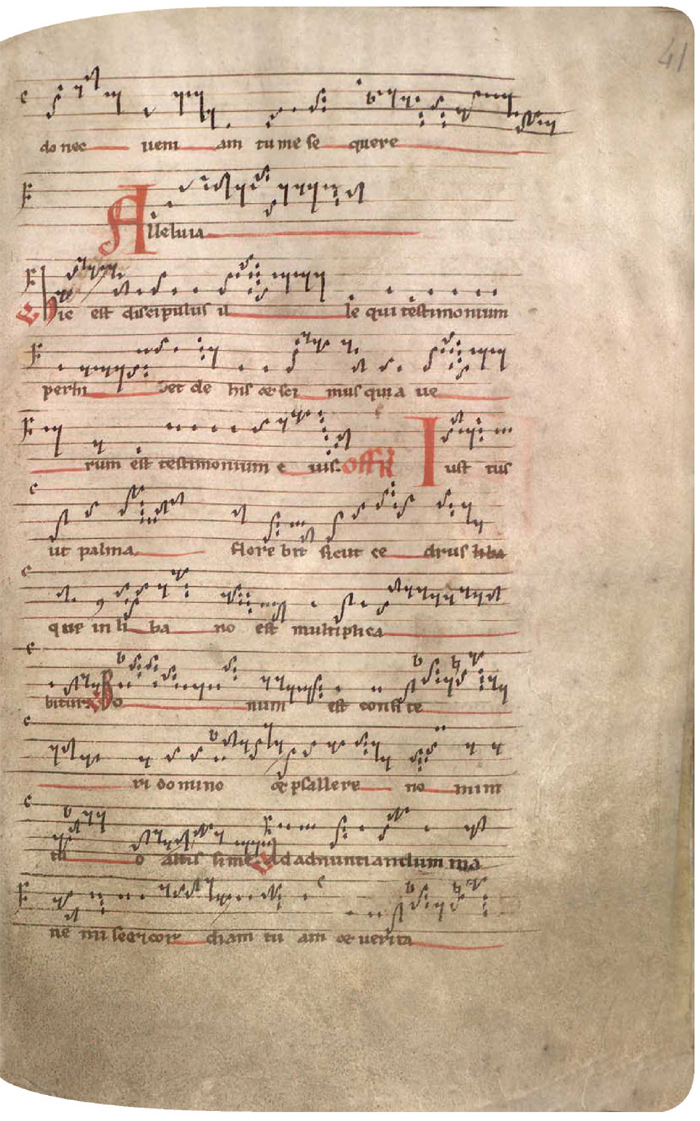 41
do nec ueni am tu me se quere
Alleluia
Hic est discipulus il le qui testimonium
perhi bet de his et sci mus quia ue
rum est testimonium e ius. Off Iust tus
ut palma flore bit sicut ce drus liba
que in li ba no est multiplica
bitur. Bo num est confi te
ri domino et psallere no mini
tu o altis sime Ad adnuntiandum ma
ne mi sericor diam tu am et uerita